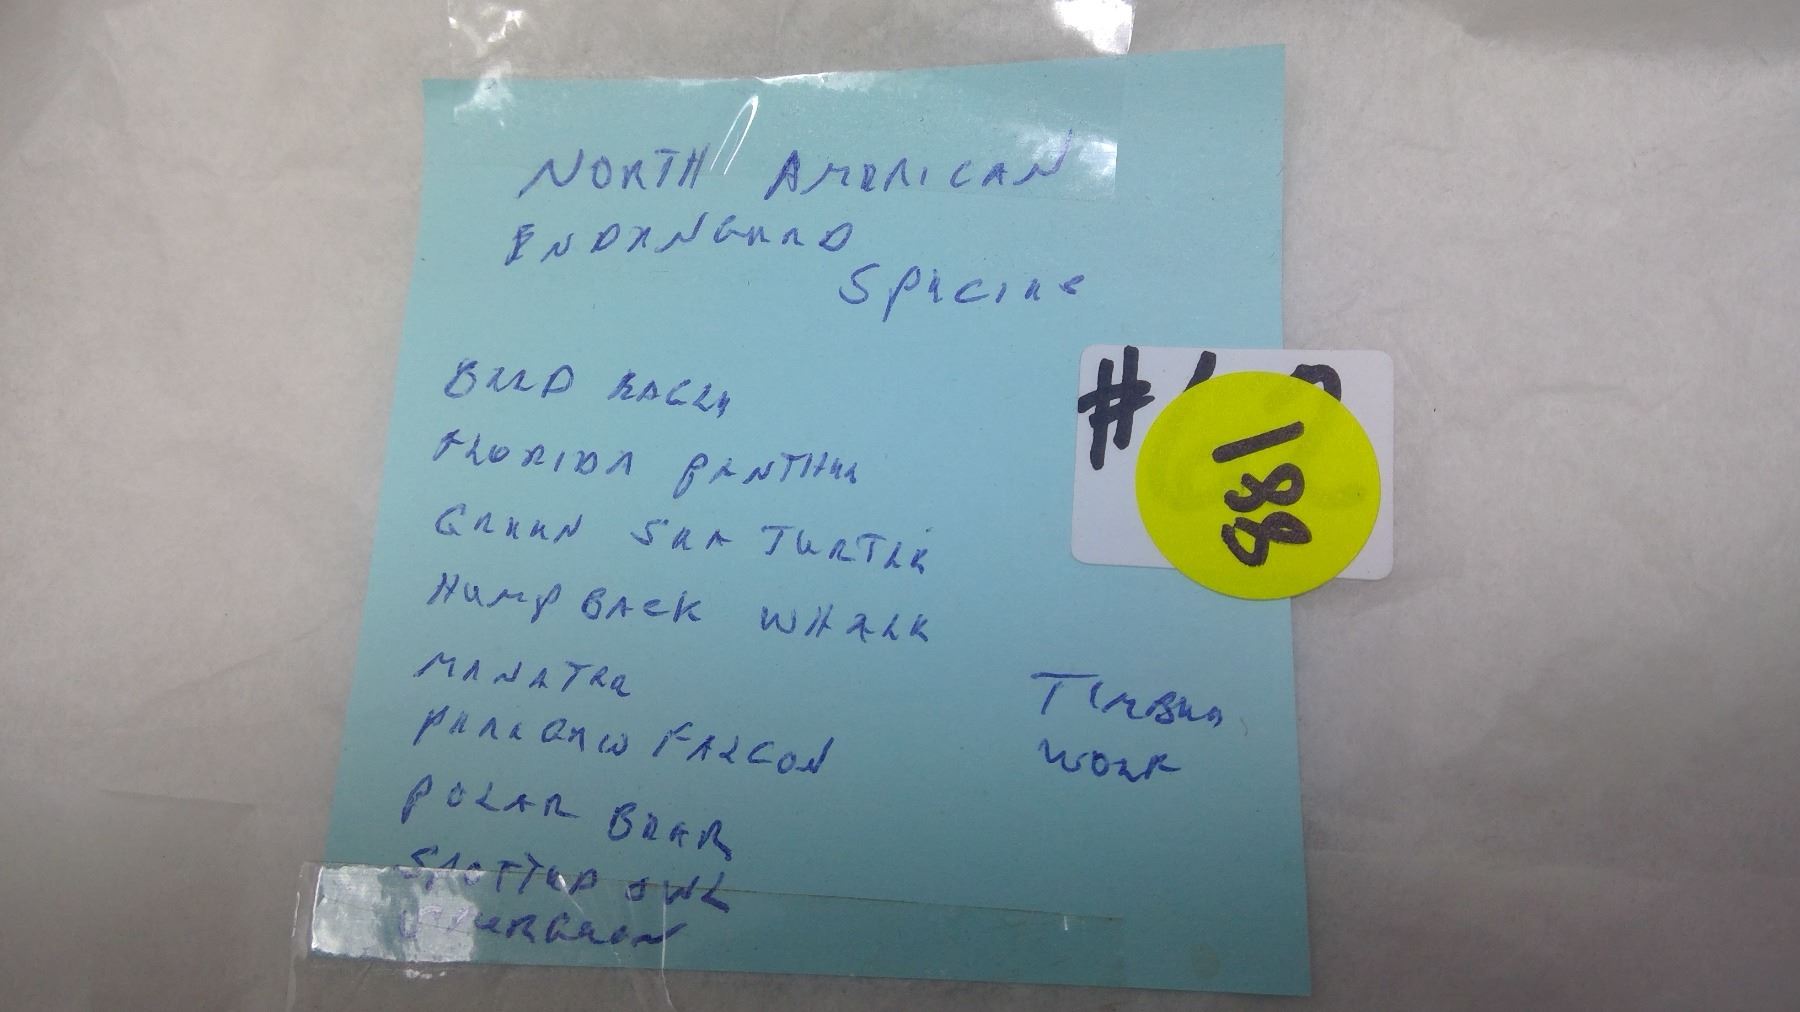 NORTH AMERICAN
ENDANGERED
SPECIES
BALD EAGLE
FLORIDA PANTHER
GREEN SEA TURTLE
HUMPBACK WHALE
MANATEE
FALCON
POLAR BEAR
SPOTTED OWL
STURGEON
TIMBER
WOLF
#
881